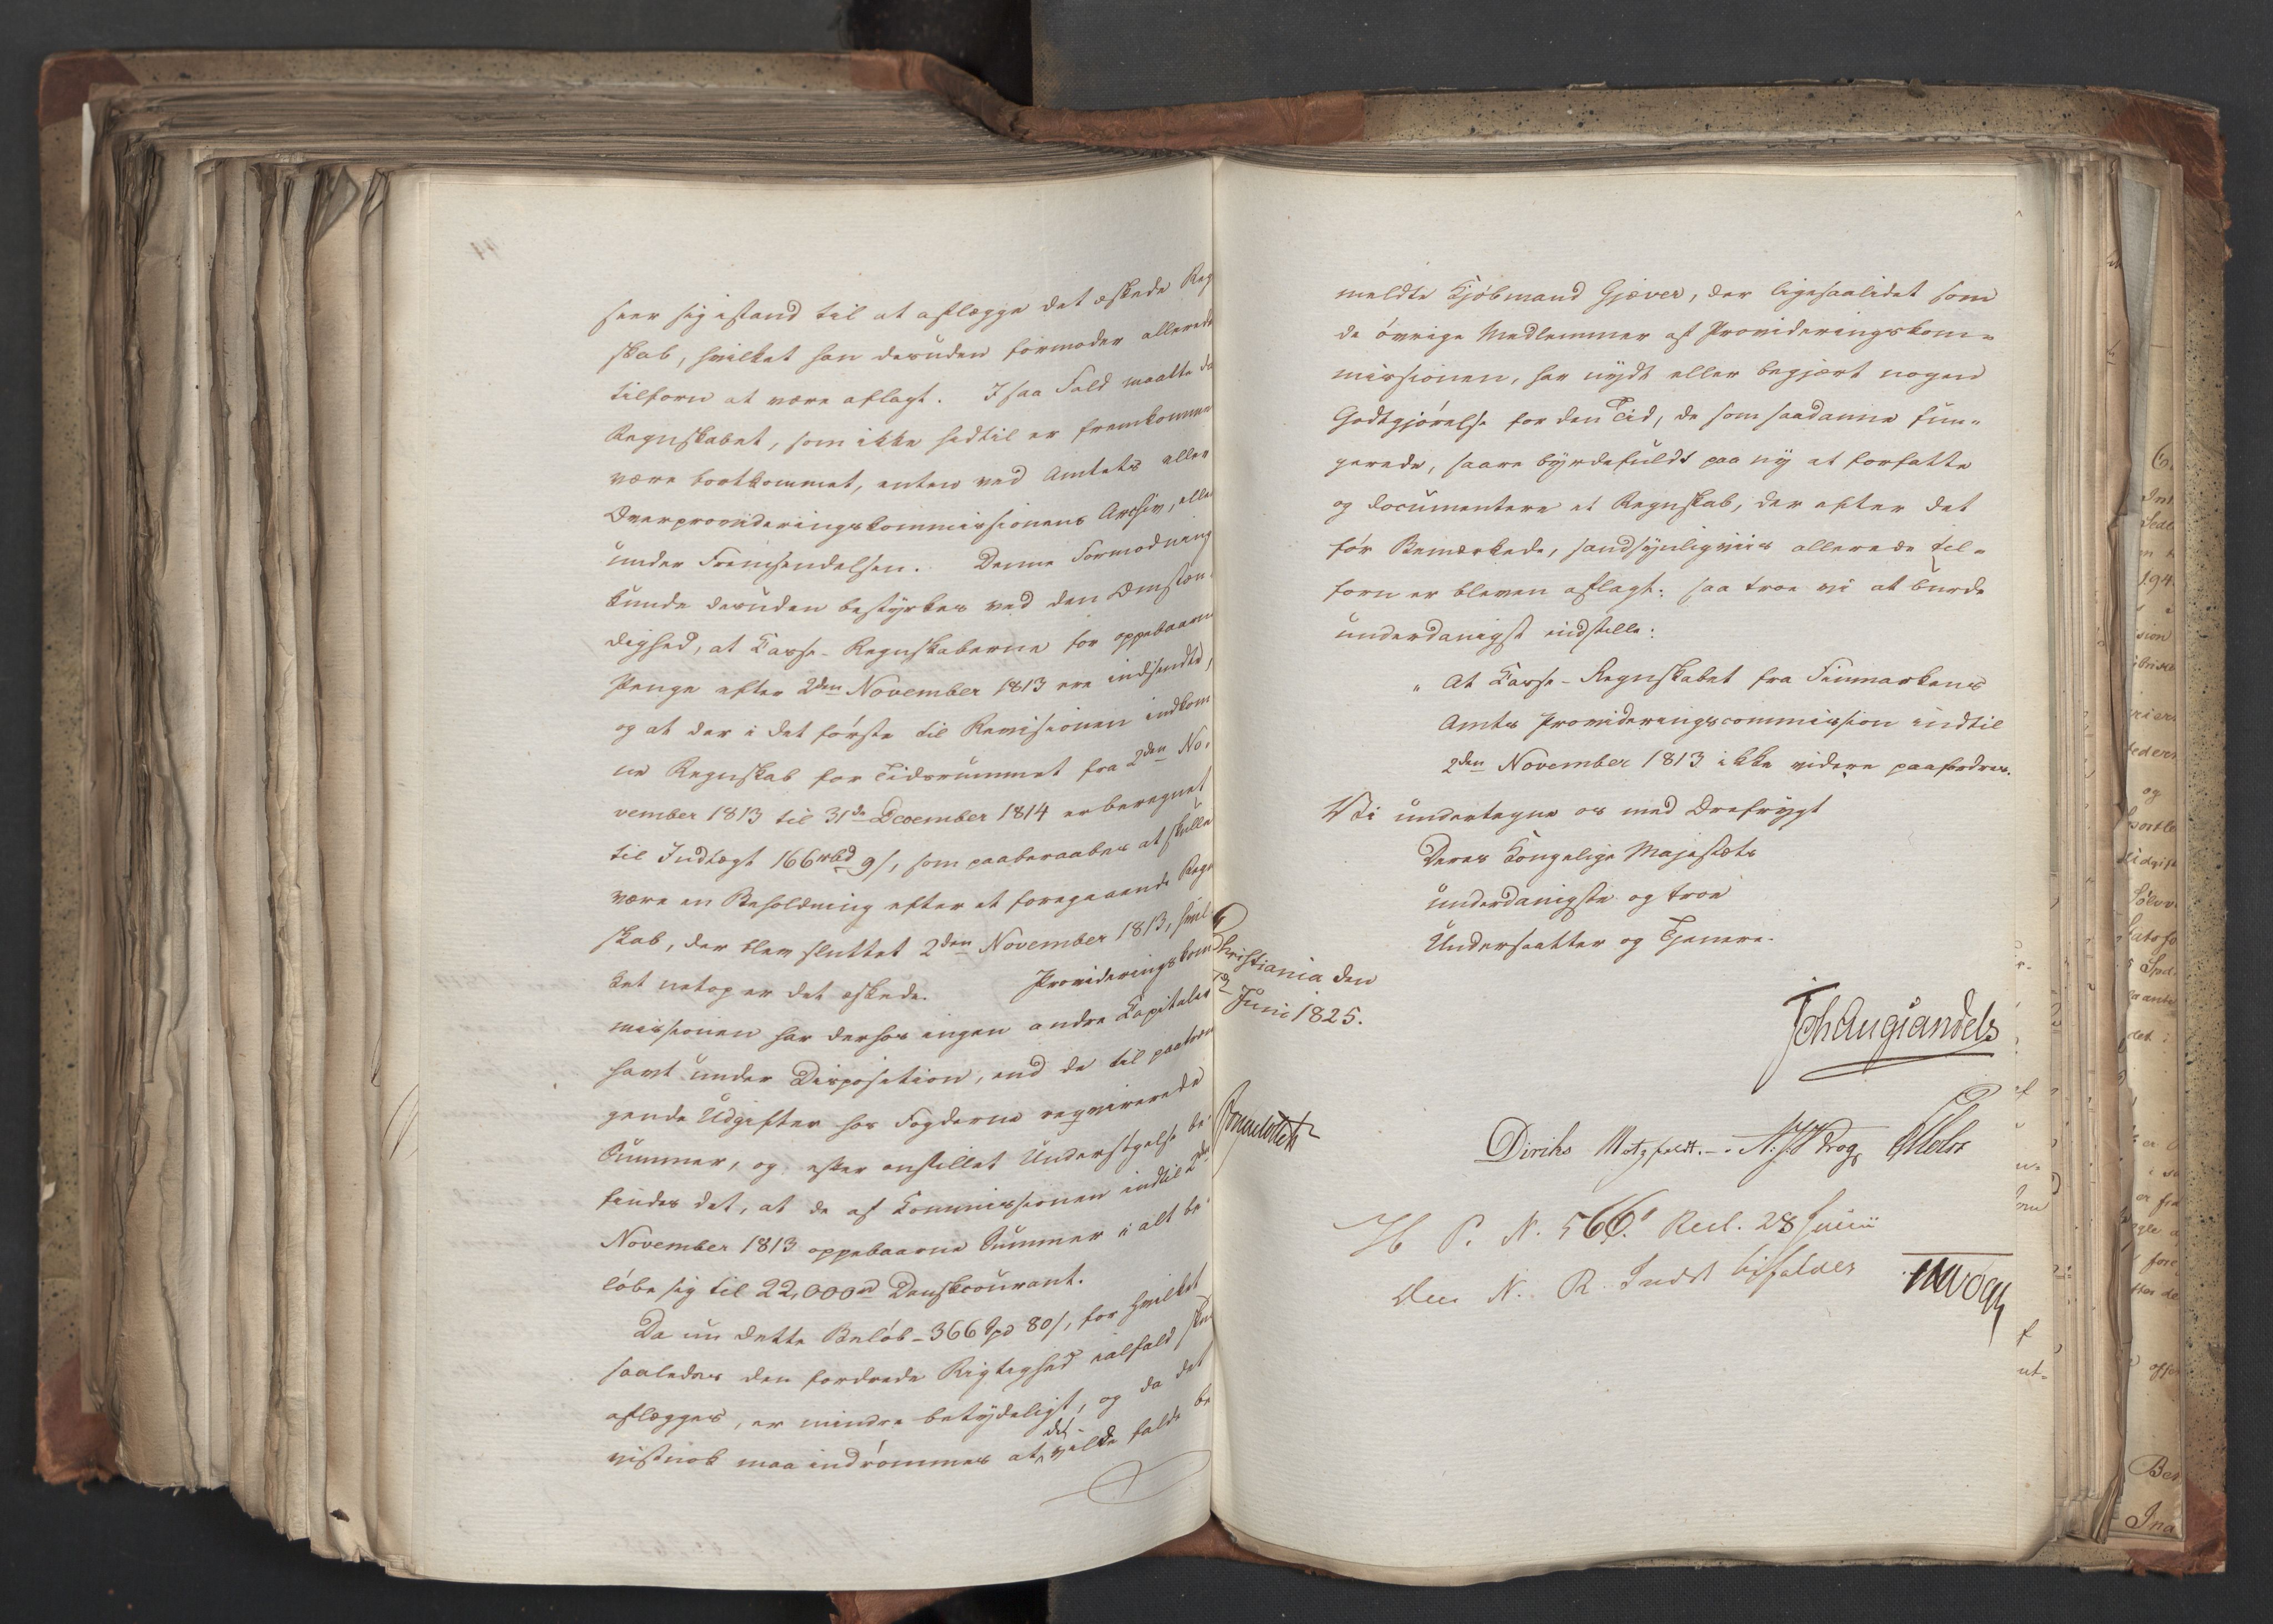 seer sig istand til at aflægge det æskede Reg
skab, hvilket han desuden formoder allerede
tilforn at være aflagt. I saa Fald maatte da
Regnskabet, som ikke hidtil er fremkommen
være bortkommet, enten ved Amtets eller
Overprovideringskommissionens Archiv, eller
under Fremsendelsen. Denne Formodning
kunde desuden bestyrkes ved den Omstæn-
dighed, at Casse-Regnskaberne for oppebaarne
Penge efter 2den November 1813 ere indsendte,
og at der i det første til Revisionen indkom
ne Regnskab for Tidsrummet fra 2den No-
vember 1813 til 31de December 1814 er beregnet
til Indtægt 166 rbd 9 s, som paaberaabes at skulle
være en Beholdning efter et foregaaende Regn
skab, der blev sluttet 2den November 1813, hvil
ket netop er det æskede. Provideringskom
missionen har derhos ingen andre Capitaler
havt under Disposition, end de til paatræn
gende Udgifter hos Fogderne reqvirerede
Summer, og efter anstillet Undersøgelse be-
findes det, at de af Commissionen indtil 2den
November 1813 oppebaarne Summer i alt be-
løbe sig til 22,000 rd Danskcourant.
Da nu dette Beløb - 366 Spd 80 s, for hvilket
saaledes den fordrede Rigtighed ialfald skul
aflægges, er mindre betydeligt, og da det
vistnok maa indrømmes at det vilde falde be
meldte Kjøbmand Gjæver, der ligesaalidet som
de øvrige Medlemmer af Provideringskom-
missionen, har nydt eller begjært nogen
Godtgjørelse for den Tid, de som saadanne fun-
gerede, saare byrdefuldt paa ny at forfatte
og documentere et Regnskab, der efter det
før Bemærkede, sandsynligviis allerede til-
forn er bleven aflagt: saa troe vi at burde
underdanigst indstille:
"At Casse-Regnskabet fra Finmarkens
Amts Provideringscommission indtil
2den November 1813 ikke videre paafordres.
Vi undertegne os med Ærefrygt
Deres Kongelige Majestæts
underdanigste og troe
Undersaatter og Tjenere.
Christiania den
Juni 1825.
Joh Aug Sandels
Sommerfeldt
Diriks Motzfeldt. N. J. Krog
H P. N. 566. Rest. 28 Junii
Den N. R. Indst bifaldes